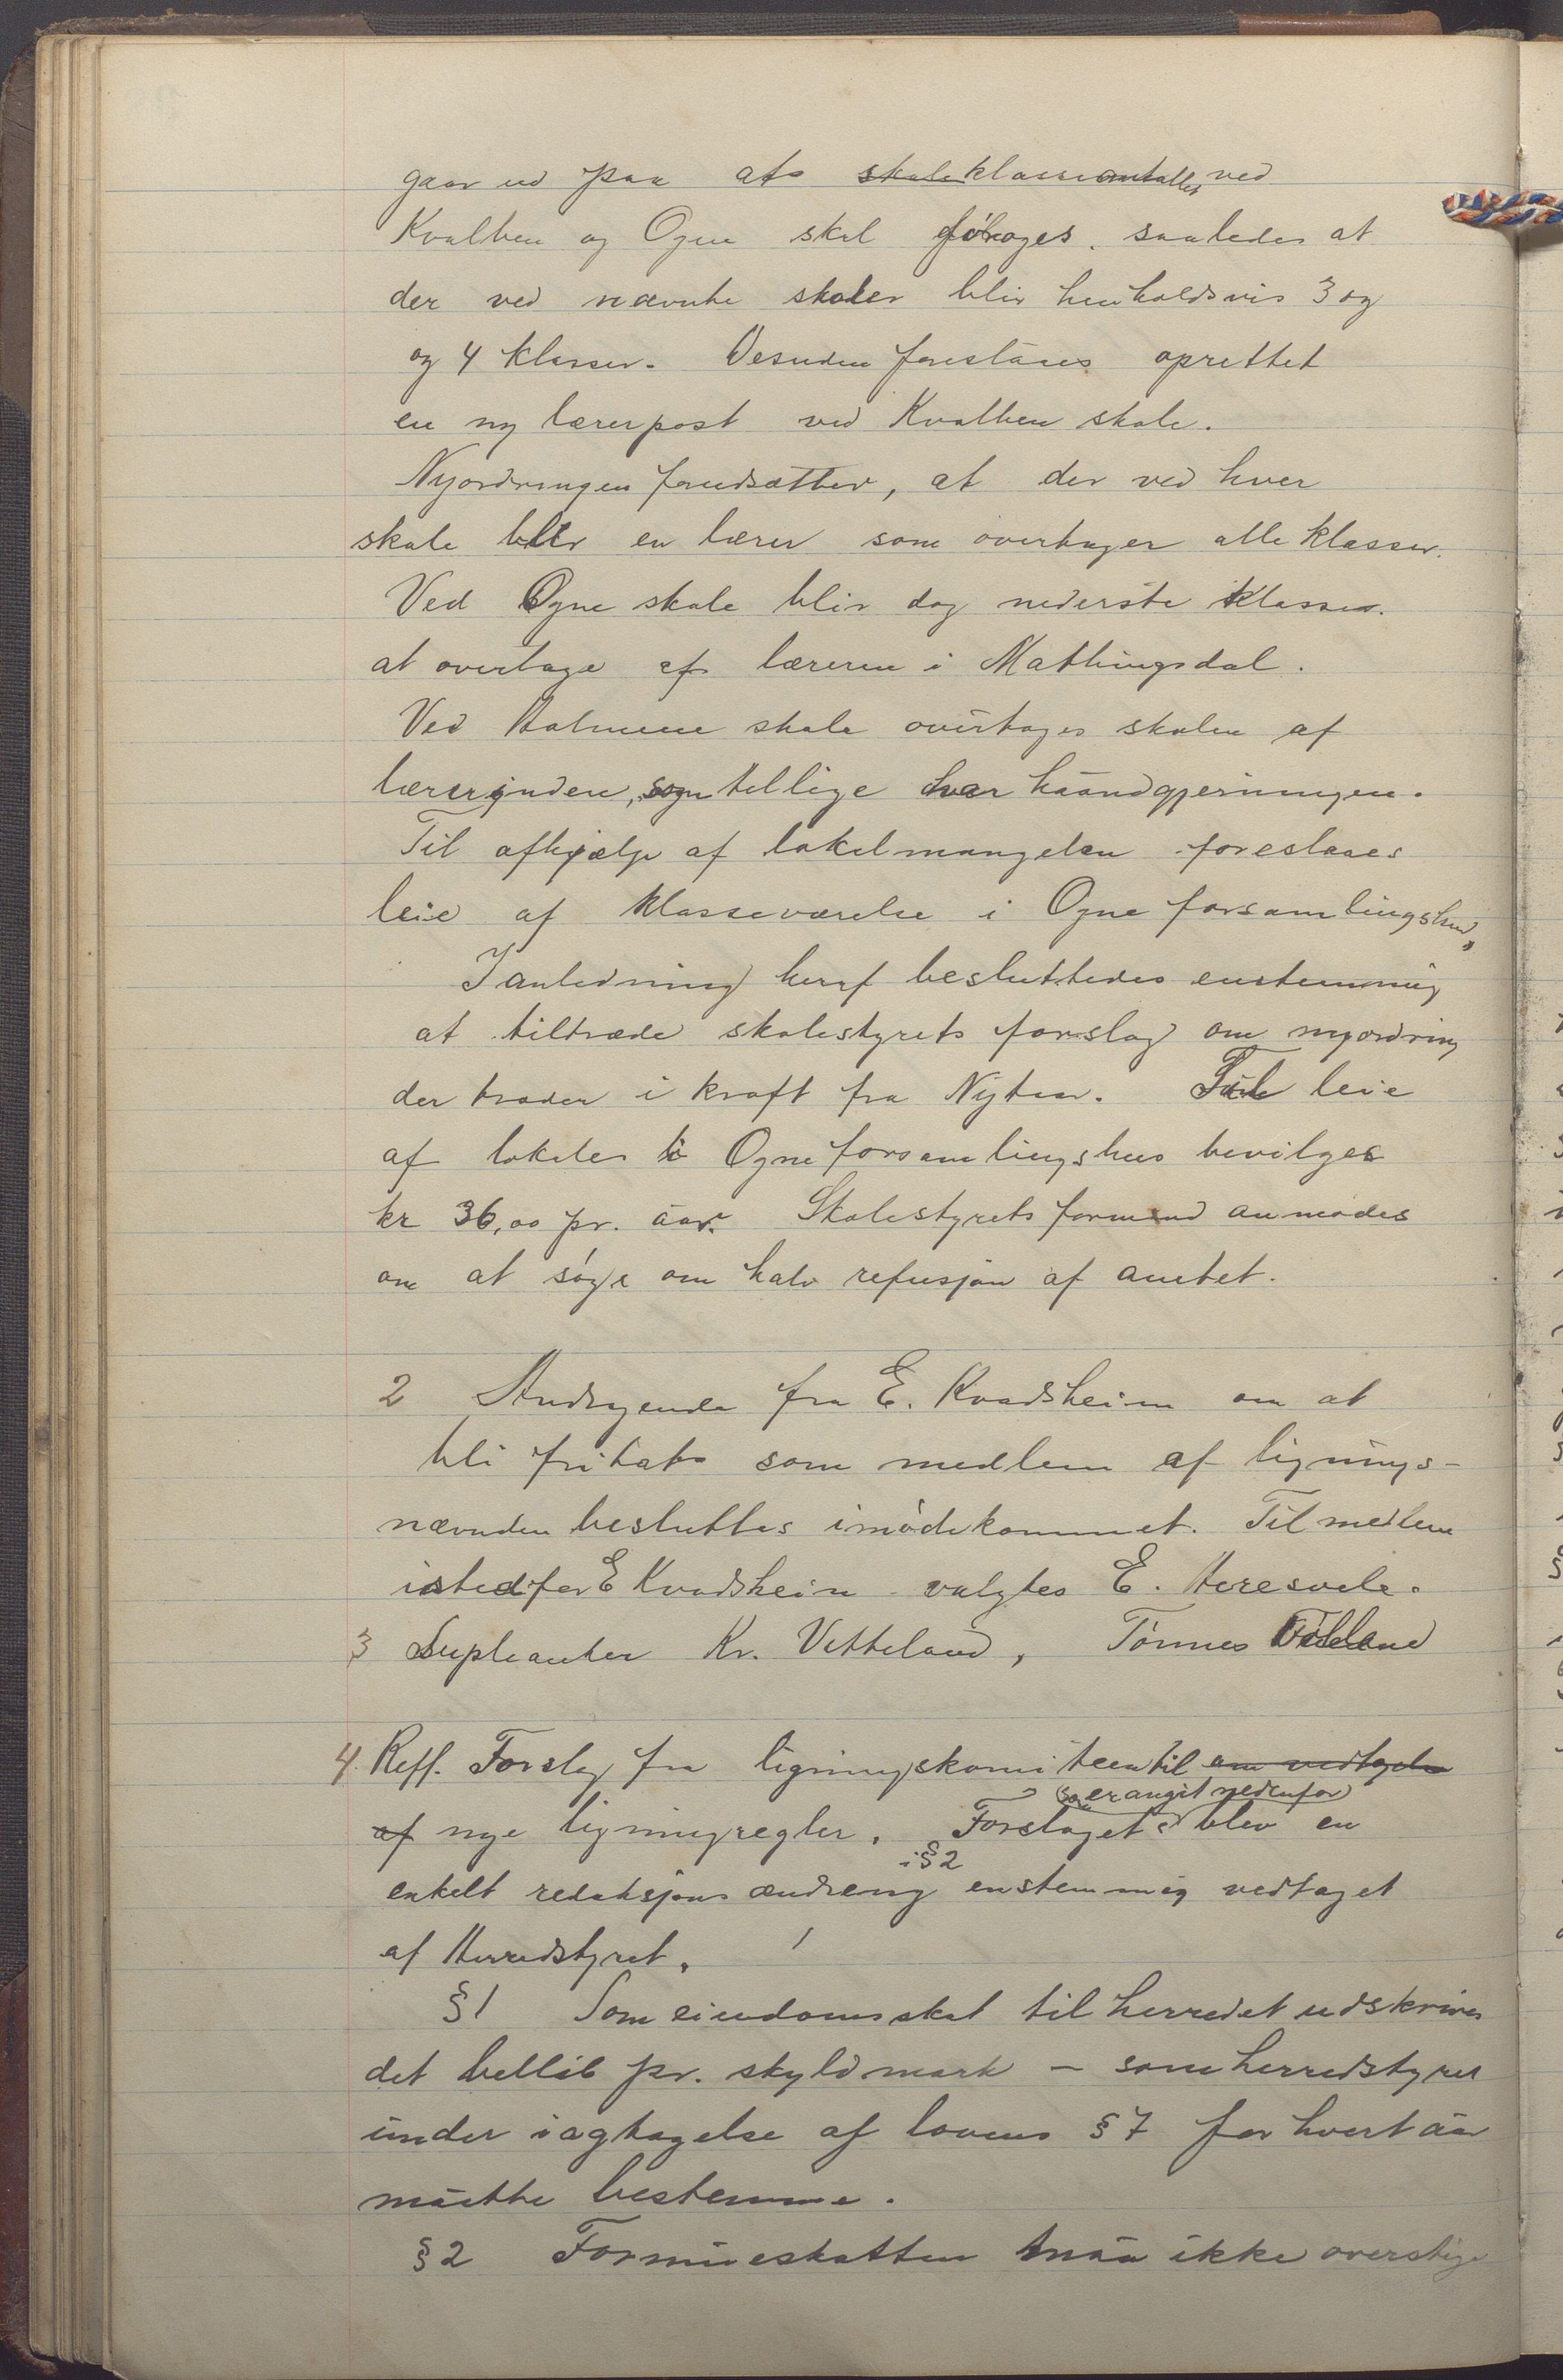 gaar ud paa at skoleklasseantallet ved
Kvalben og Ogne skal forøges, saaledes at
der ved nævnte skoler blir henholdsvis 3 og
og 4 klasser. Desuden foreslaaes oprettet
en ny lærerpost ved Kvalben skole.
Nyordningen forudsætter, at der ved hver
skole blir en lærer som overtager alle klasser.
Ved Ogne skole blir dog nederste klasser.
at overtage af læreren i Matningsdal.
Ved Holmene skole overtages skolen af
lærerinden, som tillige har haandgjerningen.
Til afhjælp af lokalmangelen foreslaaes
leie af klasseværelse i Ogne forsamlingshus,
I anledning heraf besluttedes enstemmig
at tiltræde skolestyrets forslag om nyordning
der træder i kraft fra Nytaar. Til leie
af lokaler i Ogne forsamlingshus bevilges
kr 36,00 pr. aar. Skolestyrets formand anmodes
om at søge om halv refusjon af amtet.
2 Andragende fra E. Kvadsheim om at
bli fritat som medlem af lignings-
nævnden besluttes imødekommet. Til medlem
istedfor E Kvadsheim valgtes E. Heresvele.
3 Supleanter Kr. Vetteland, Tønnes
4. Reff. Forslag fra ligningskomiteen til om vedtagelse
(som er angit nedenfor)
af nye ligningsregler. Forslaget blev en
i § 2
enkelt redaksjons ændreng enstemmig vedtaget
af Herredstyret.
§ 1 Som eiendomsskat til herredet udskrives
det beløb pr. skyldmark – som herredstyret
under iagtagelse af lovens § 7 for hvert aar
maatte bestemme.
§ 2 Formueskatten maa ikke overstige